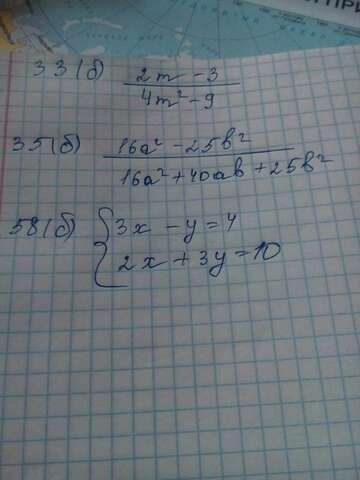 ПРИ
33(б) 2m - 3 / 4m² - 9
35(б) 16a² - 25b² / 16a² + 40ab + 25b²
58(б) { 3x - y = 4
2x + 3y = 10